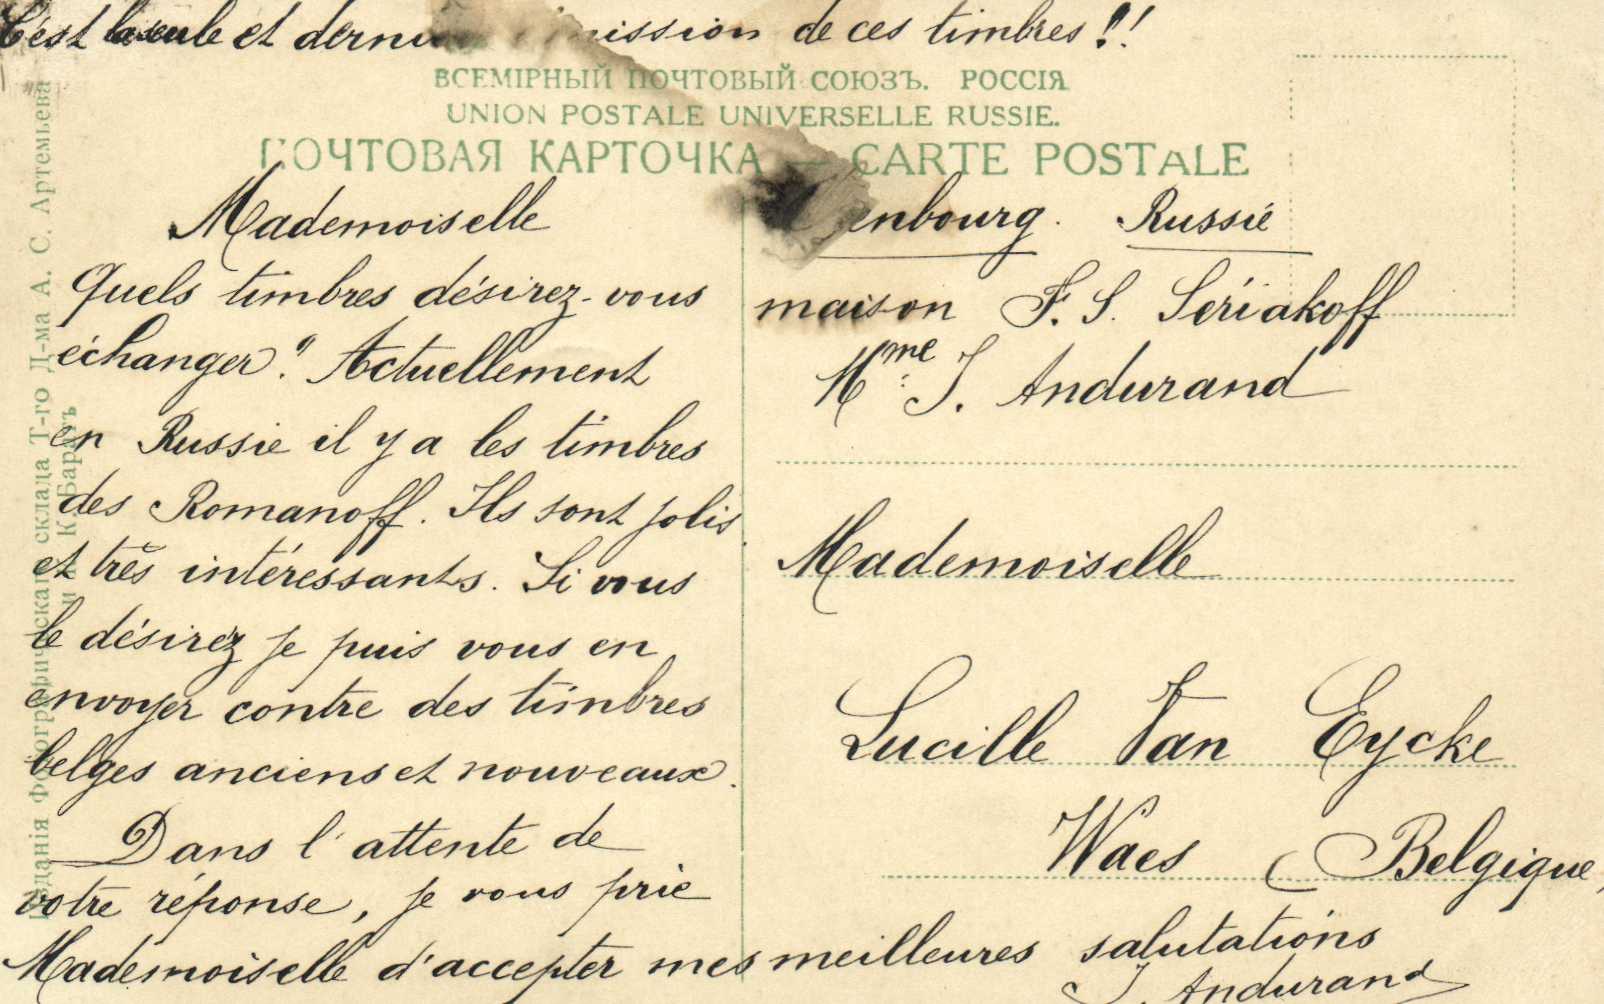 C'est la seule et dernière émission de ces timbres !!
ВСЕМІРНЫЙ ПОЧТОВЫЙ СОЮЗЪ. РОССІЯ
UNION POSTALE UNIVERSELLE RUSSIE.
ПОЧТОВАЯ КАРТОЧКА — CARTE POSTALE
Mademoiselle
Quels timbres désirez-vous
échanger? Actuellement
en Russie il y a les timbres
des Romanoff. Ils sont jolis
et très intéressants. Si vous
le désirez je puis vous en
envoyer contre des timbres
belges anciens et nouveaux.
Dans l'attente de
votre réponse, je vous prie
Mademoiselle d'accepter mes meilleures salutations
J. Andurand
enbourg. Russie
maison F. S. Sériakoff
Mme J. Andurand
Mademoiselle
Lucille Van Eycke
Waes (Belgique)
Изданія Фотографическаго склада Т-го Д-ма А. С. Артемьева
и К. Бардтъ